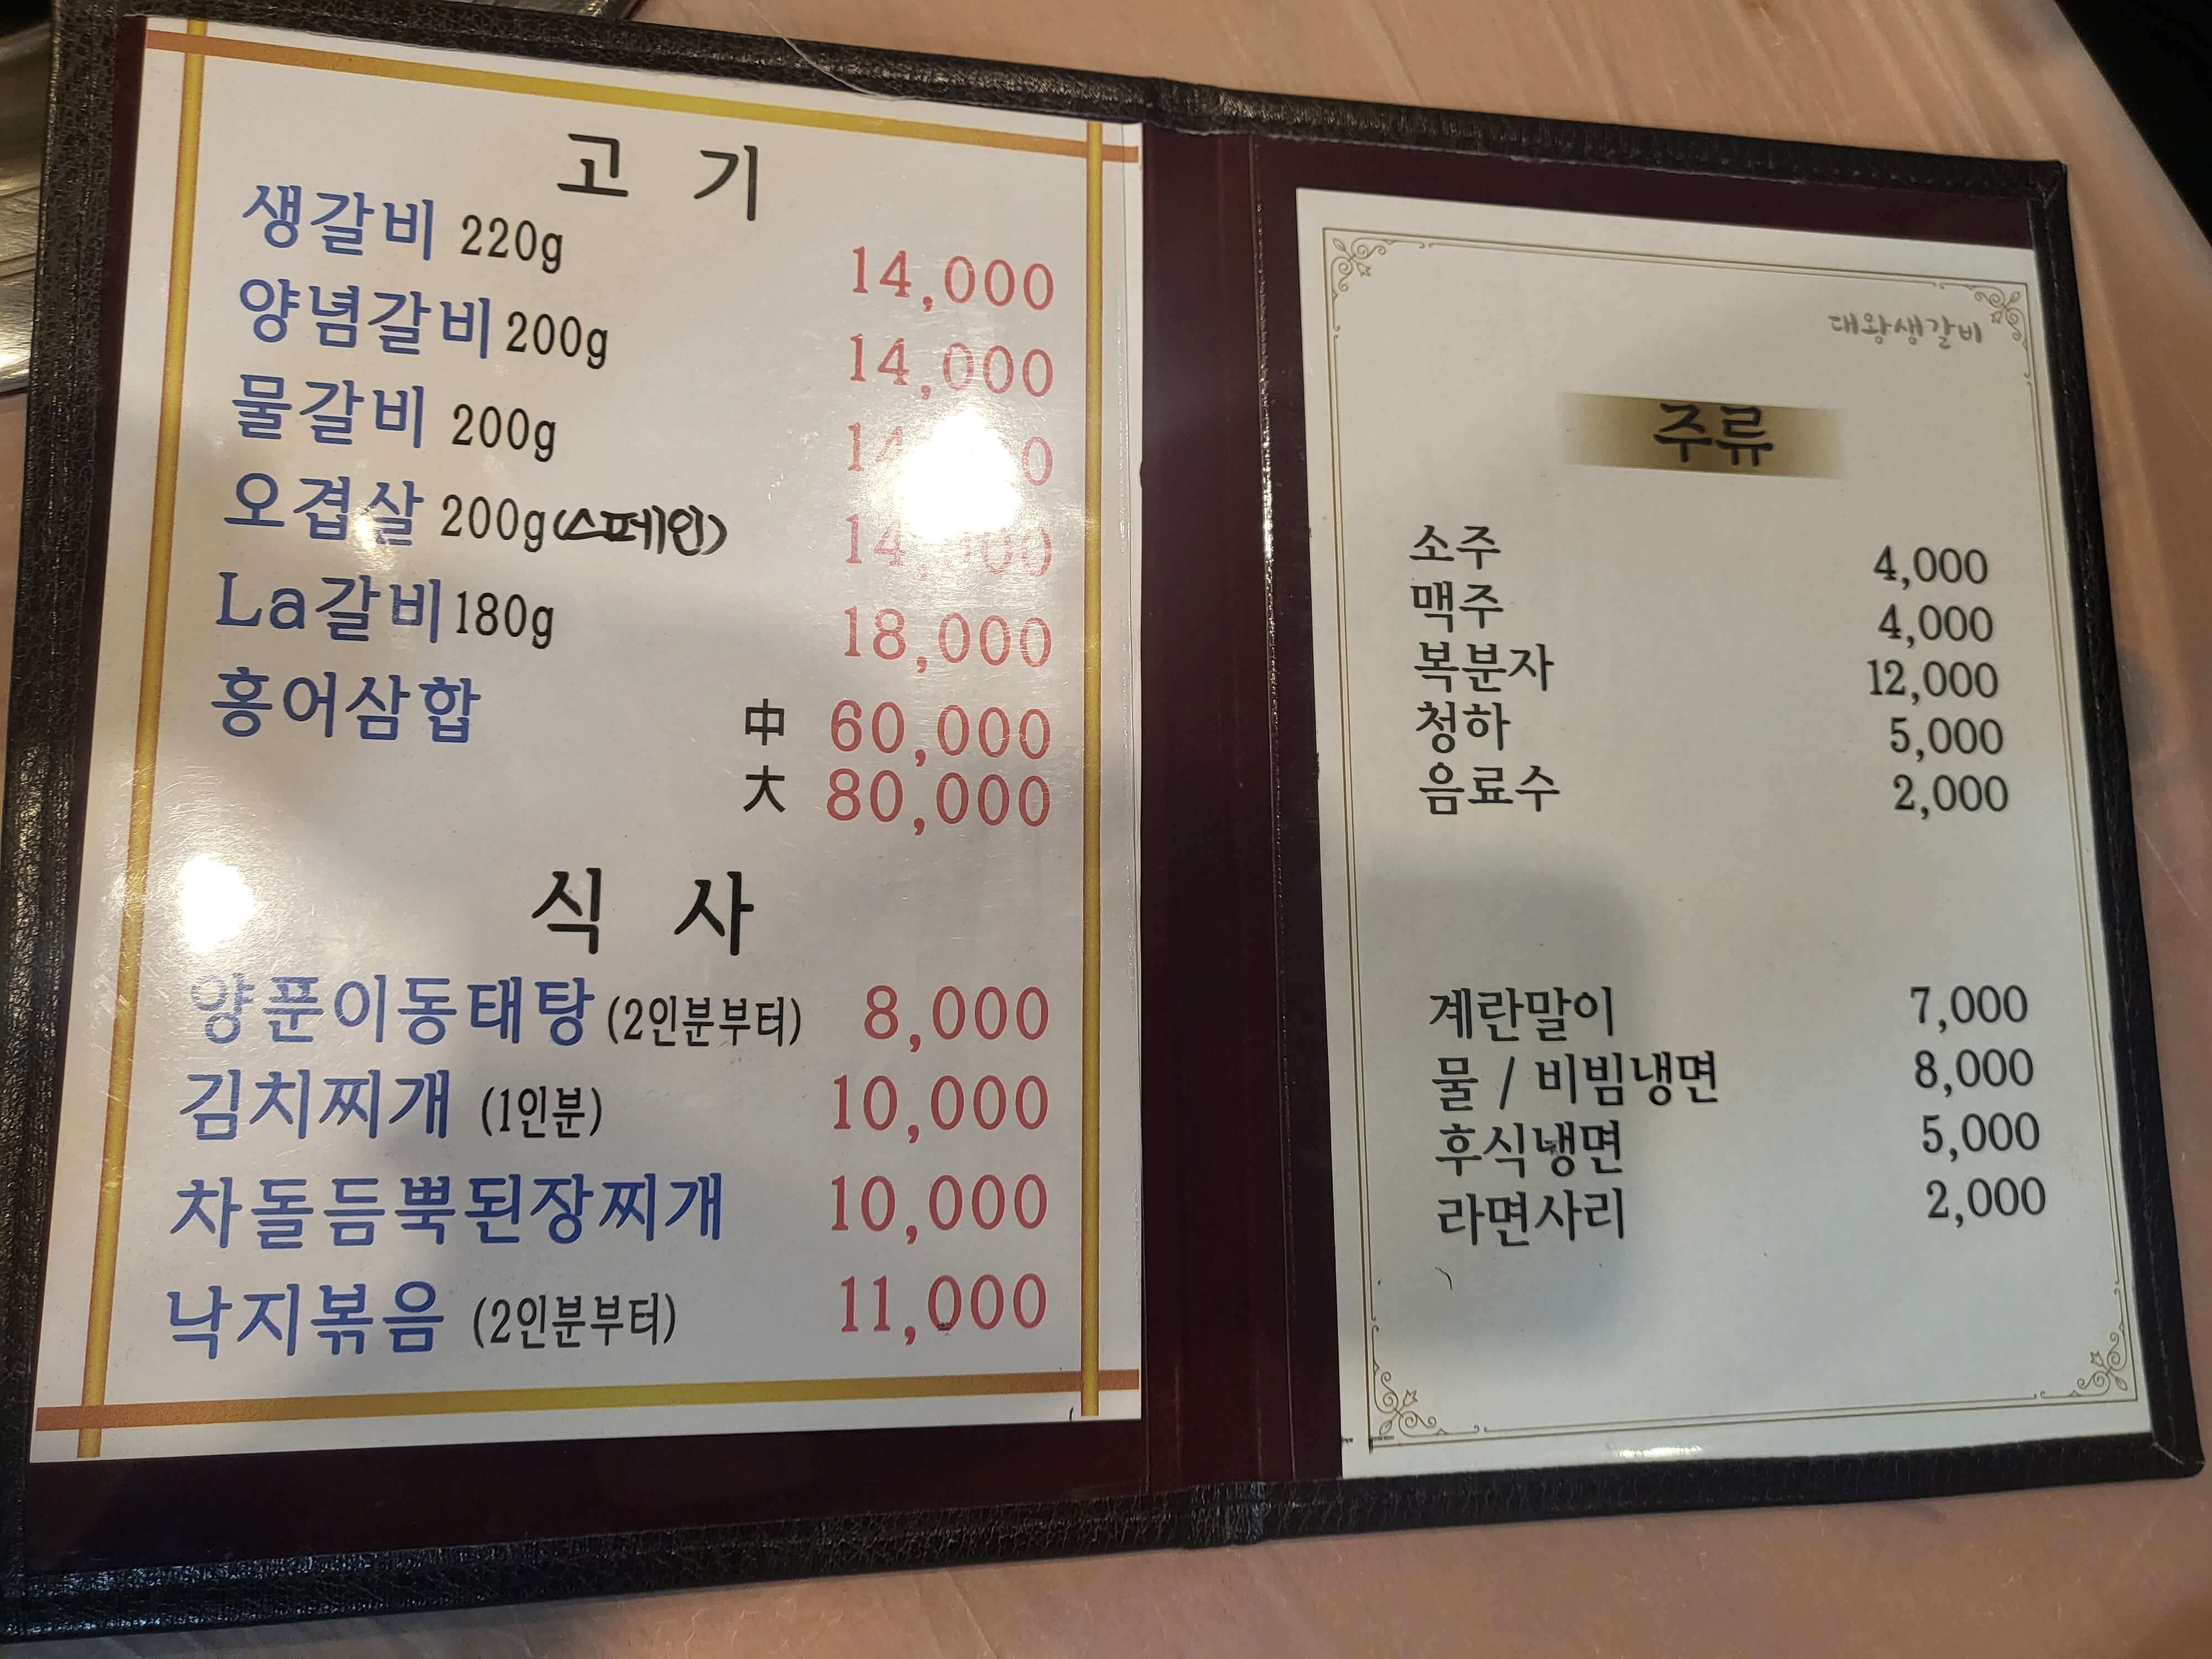 고 기
생갈비 220g 14,000
양념갈비 200g 14,000
물갈비 200g
오겹살 200g(스페인) 14,000
La갈비 180g 18,000
홍어삼합 中 60,000
大 80,000
식 사
양푼이동태탕 (2인분부터) 8,000
김치찌개 (1인분) 10,000
차돌듬뿍된장찌개 10,000
낙지볶음 (2인분부터) 11,000
대왕생갈비
주류
소주 4,000
맥주 4,000
복분자 12,000
청하 5,000
음료수 2,000
계란말이 7,000
물 / 비빔냉면 8,000
후식냉면 5,000
라면사리 2,000